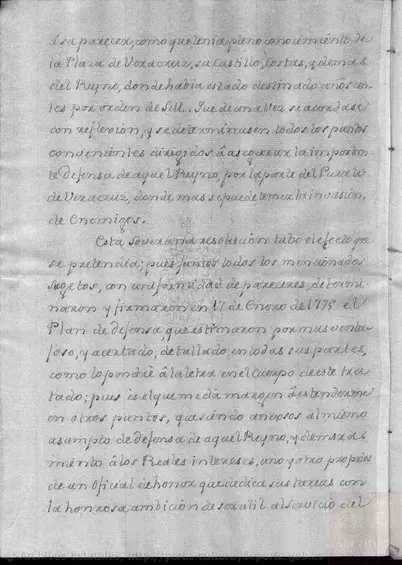 â su parecer, como que tenia pleno conocimiento, de
la Plaza de Veracruz, su Castillo, Costas, y demas
del Reyno, donde habia estado destinado años an-
tes por orden de S.M. fue de una vez se acordase
con reflexión, y se determinasen todos los puntos
convenientes dirigidos â asegurar la importan-
te defensa de aquel Reyno, por la parte del Puerto
de Veracruz, donde mas se puede temer la invasión
de Enemigos.
Esta soverana resolución tubo el efecto que
se pretendia; pues juntos todos los mencionados
sugetos, con uniformidad de pareceres, determi-
naron y firmaron en 17 de Enero de 1775 el
Plan de defensa, que estimaron por mas venta-
joso, y acertado, detallado en todas sus partes,
como lo pondré â la letra en el Cuerpo de este tra-
tado; pues es el que me dá margen â estenderme
en otros puntos, que sendo anexos al mismo
asumpto de defensa de aquel Reyno, y demas ra-
miento â los Reales intereses, uno y otro proprios
de un Oficial de honor que dedica sus tareas con
la honrosa ambición de ser util al servicio del